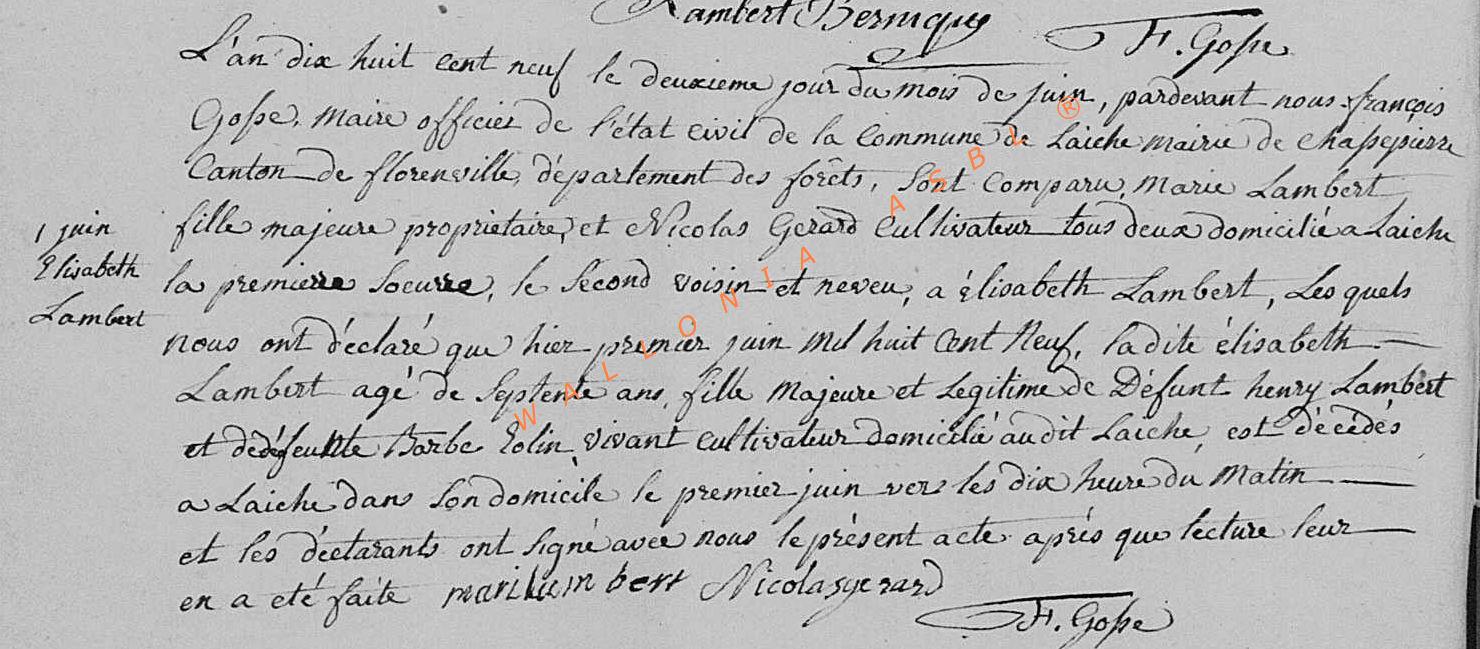 Lambert Bernique
F. Gosse
L'an dix huit cent neuf le deuxieme jour du mois de juin, pardevant nous françois
Gosse, maire officier de l'état civil de la commune de Laiche mairie de chassepierre
Canton de florenville, département des forêts, sont comparu, Marie Lambert
fille majeure propriétaire, et Nicolas Gerard cultivateur tous deux domicilié a Laiche
1 juin
Elisabeth
Lambert
la premierre soeurre, le second voisin et neveu, a élisabeth Lambert, Les quels
nous ont déclaré que hier premier juin mil huit cent Neuf, ladite élisabeth
Lambert agé de septente ans, fille Majeure et Legitime de Défunt henry Lambert
et dedéfeunte Barbe Eolin vivant cultivateur domicilié audit Laiche, est décédés
a Laiche dans son domicile le premier juin vers les dix heure du Matin
et les déclarants ont signé avec nous le présent acte après que lecture leur
en a eté faite marilambert Nicolasgerard
F. Gosse
WALLONIA ASBL ®